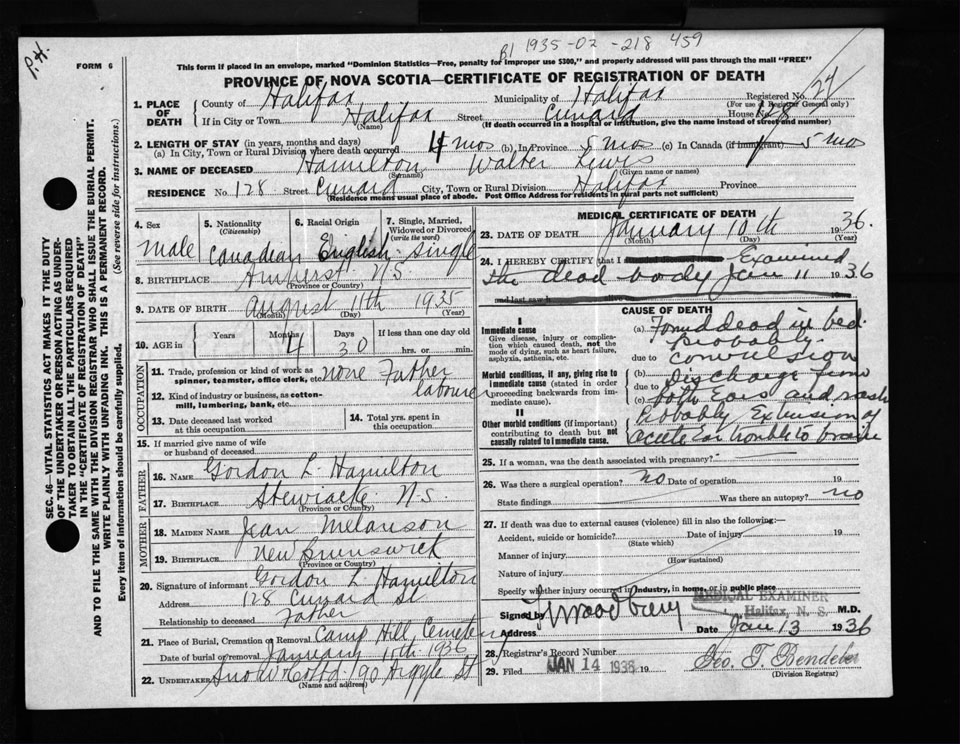 P.H.
B1 1935-02-218 459
FORM 6
This form if placed in an envelope, marked "Dominion Statistics—Free, penalty for improper use $300," and properly addressed will pass through the mail "FREE"
PROVINCE OF NOVA SCOTIA—CERTIFICATE OF REGISTRATION OF DEATH
SEC. 46—VITAL STATISTICS ACT MAKES IT THE DUTY
OF THE UNDERTAKER OR PERSON ACTING AS UNDER-
TAKER TO OBTAIN ALL THE PARTICULARS REQUIRED
IN THE "CERTIFICATE OF REGISTRATION OF DEATH"
AND TO FILE THE SAME WITH THE DIVISION REGISTRAR WHO SHALL ISSUE THE BURIAL PERMIT.
WRITE PLAINLY WITH UNFADING INK. THIS IS A PERMANENT RECORD.
Every item of information should be carefully supplied. (See reverse side for instructions.)
1. PLACE OF DEATH County of Halifax Municipality of Halifax Registered No. 24
(For use of Registrar General only)
If in City or Town Halifax Street Cunard House No. 128
(Name) (If death occurred in a hospital or institution, give the name instead of street and number)
2. LENGTH OF STAY (in years, months and days)
(a) In City, Town or Rural Division where death occurred 4 mos (b) In Province 5 mos (c) In Canada (if immigrant) 5 mos
3. NAME OF DECEASED Hamilton Walter Lewis
(Surname) (Given name or names)
RESIDENCE No. 128 Street Cunard City, Town or Rural Division Halifax Province
(Residence means usual place of abode. Post Office Address for residents in rural parts not sufficient)
4. Sex 5. Nationality (Citizenship) 6. Racial Origin 7. Single, Married, Widowed or Divorced (write the word)
male Canadian English Single
8. BIRTHPLACE Amherst N.S.
(Province or Country)
9. DATE OF BIRTH August 11th 1935
(Month) (Day) (Year)
10. AGE in Years Months 4 Days 30 If less than one day old hrs. or min.
OCCUPATION
11. Trade, profession or kind of work as spinner, teamster, office clerk, etc. none Father labourer
12. Kind of industry or business, as cotton-mill, lumbering, bank, etc.
13. Date deceased last worked at this occupation
14. Total yrs. spent in this occupation
15. If married give name of wife or husband of deceased
FATHER
16. NAME Gordon L. Hamilton
17. BIRTHPLACE Stewiacke N.S.
(Province or Country)
MOTHER
18. MAIDEN NAME Jean Melanson
19. BIRTHPLACE New Brunswick
(Province or Country)
20. Signature of informant Gordon L Hamilton
Address 128 Cunard St
Relationship to deceased Father
21. Place of Burial, Cremation or Removal Camp Hill Cemetery
Date of burial or removal January 11th 1936
22. UNDERTAKER Snow & Co Ltd 190 Argyle St
(Name and address)
MEDICAL CERTIFICATE OF DEATH
23. DATE OF DEATH January 10th 1936.
(Month) (Day) (Year)
24. I HEREBY CERTIFY that I Examined
the dead body Jan 11 1936
and last saw h alive on 19
CAUSE OF DEATH
I
Immediate cause
Give disease, injury or complication which caused death, not the mode of dying, such as heart failure, asphyxia, asthenia, etc.
Morbid conditions, if any, giving rise to immediate cause (stated in order proceeding backwards from immediate cause).
II
Other morbid conditions (if important) contributing to death but not causally related to immediate cause.
(a) Found dead in bed.
Probably
due to convulsion
(b) Discharge from
due to
(c) both Ears and rash
Probably Extension of
acute Ear trouble to brain
25. If a woman, was the death associated with pregnancy?
26. Was there a surgical operation? no Date of operation 19
State findings Was there an autopsy? no
27. If death was due to external causes (violence) fill in also the following:—
Accident, suicide or homicide? Date of injury 19
(State which)
Manner of injury
(How sustained)
Nature of injury
Specify whether injury occurred in industry, in home, or in public place
MEDICAL EXAMINER
Halifax, N. S.
Signed by Woodbury M.D.
Address Date Jan 13 1936
28. Registrar's Record Number
29. Filed JAN 14 1936 19 Geo. T. Bendeber
(Division Registrar)